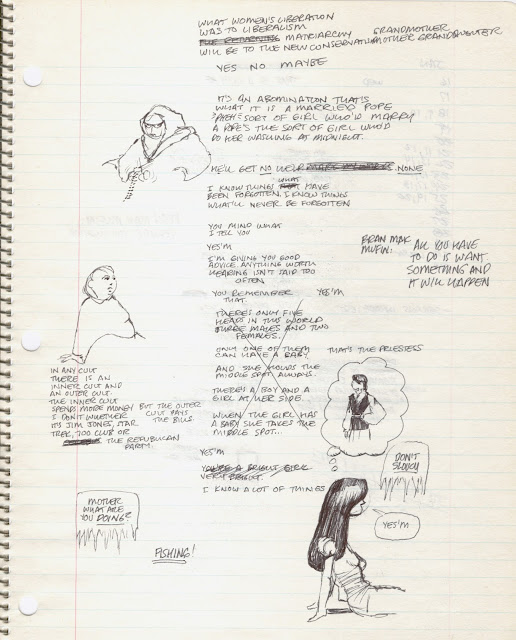 WHAT WOMEN'S LIBERATION
WAS TO LIBERALISM
MATRIARCHY GRANDMOTHER
WILL BE TO THE NEW CONSERVATIVE MOTHER GRANDDAUGHTER
YES NO MAYBE
IT'S AN ABOMINATION THAT'S
WHAT IT IS A MARRIED POPE
SORT OF GIRL WHO'D MARRY
A POPE'S THE SORT OF GIRL WHO'D
DO HER WASHING AT MIDNIGHT.
HE'LL GET NO HELP NONE
I KNOW THINGS WHAT HAVE
BEEN FORGOTTEN. I KNOW THINGS
WHAT'LL NEVER BE FORGOTTEN
YOU MIND WHAT
I TELL YOU
YES'M
I'M GIVING YOU GOOD
ADVICE. ANYTHING WORTH
HEARING ISN'T SAID TOO
OFTEN
YOU REMEMBER YES'M
THAT.
THERE'S ONLY FIVE
HEADS IN THIS WORLD
THREE MALES AND TWO
FEMALES.
ONLY ONE OF THEM
CAN HAVE A BABY.
AND SHE HOLDS THE
MIDDLE SPOT, ALWAYS.
THERE'S A BOY AND A
GIRL AT HER SIDE.
WHEN THE GIRL HAS
A BABY SHE TAKES THE
MIDDLE SPOT...
YES'M
YOU'RE A BRIGHT GIRL
VERY BRIGHT.
I KNOW A LOT OF THINGS
BRAN MAK
MUFIN:
ALL YOU HAVE
TO DO IS WANT
SOMETHING AND
IT WILL HAPPEN
THAT'S THE PRIESTESS
DON'T
SLOUCH
YES'M
IN ANY CULT
THERE IS AN
INNER CULT AND
AN OUTER CULT.
THE INNER CULT
SPENDS MORE MONEY BUT THE OUTER
CULT PAYS
THE BILLS.
I DON'T WHETHER
IT'S JIM JONES, STAR
TREK, 700 CLUB OR
THE REPUBLICAN
PARTY.
MOTHER
WHAT ARE
YOU DOING?
FISHING!